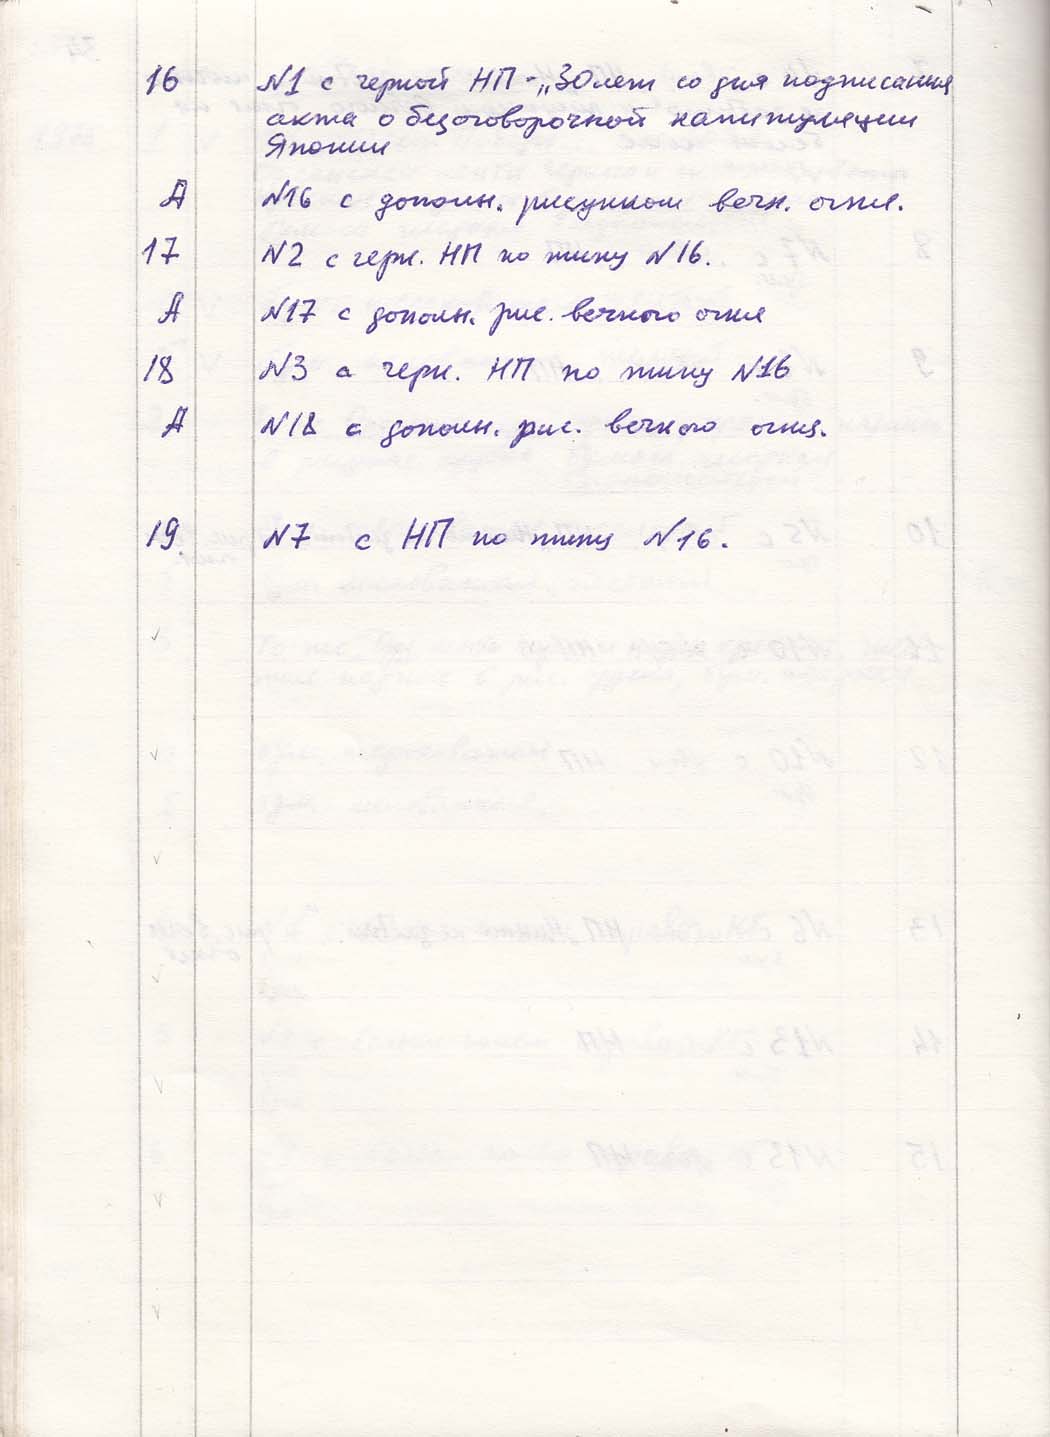 16 N1 с черной НП - „30 лет со дня подписания
акта о безоговорочной капитуляции
Японии
А N16 с дополн. рисунком вечн. огня.
17 N2 с черн. НП по типу N16.
А N17 с дополн. рис. вечного огня
18 N3 с черн. НП по типу N16
А N18 с дополн. рис. вечного огня.
19. N7 с НП по типу N16.